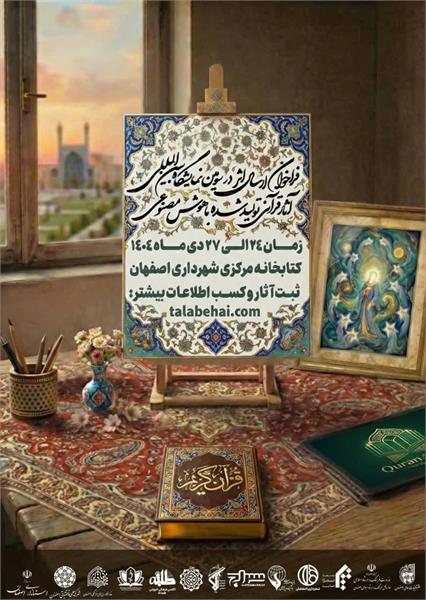 فراخوان ارسال اثر در سومین نمایشگاه بین‌المللی
آثار قرآنی تولید شده با هوش مصنوعی
زمان ۲۴ الی ۲۷ دی ماه ۱۴۰۴
کتابخانه مرکزی شهرداری اصفهان
ثبت آثار و کسب اطلاعات بیشتر:
talabehai.com
Quran
قرآن کریم
طلبه
سراج